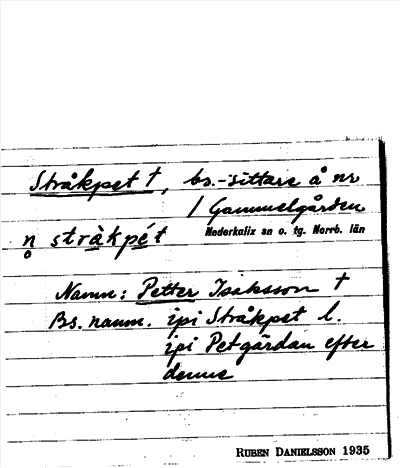 Stråkpet †, bs.-sittare å nr
1 Gammelgården
Nederkalix sn o. tg. Norrb. län
n̥ stràkpét
Namn: Petter Isaksson †
Bs. namn. ipi Stråkpet l.
ipi Petgårdan efter
denne
RUBEN DANIELSSON 1935